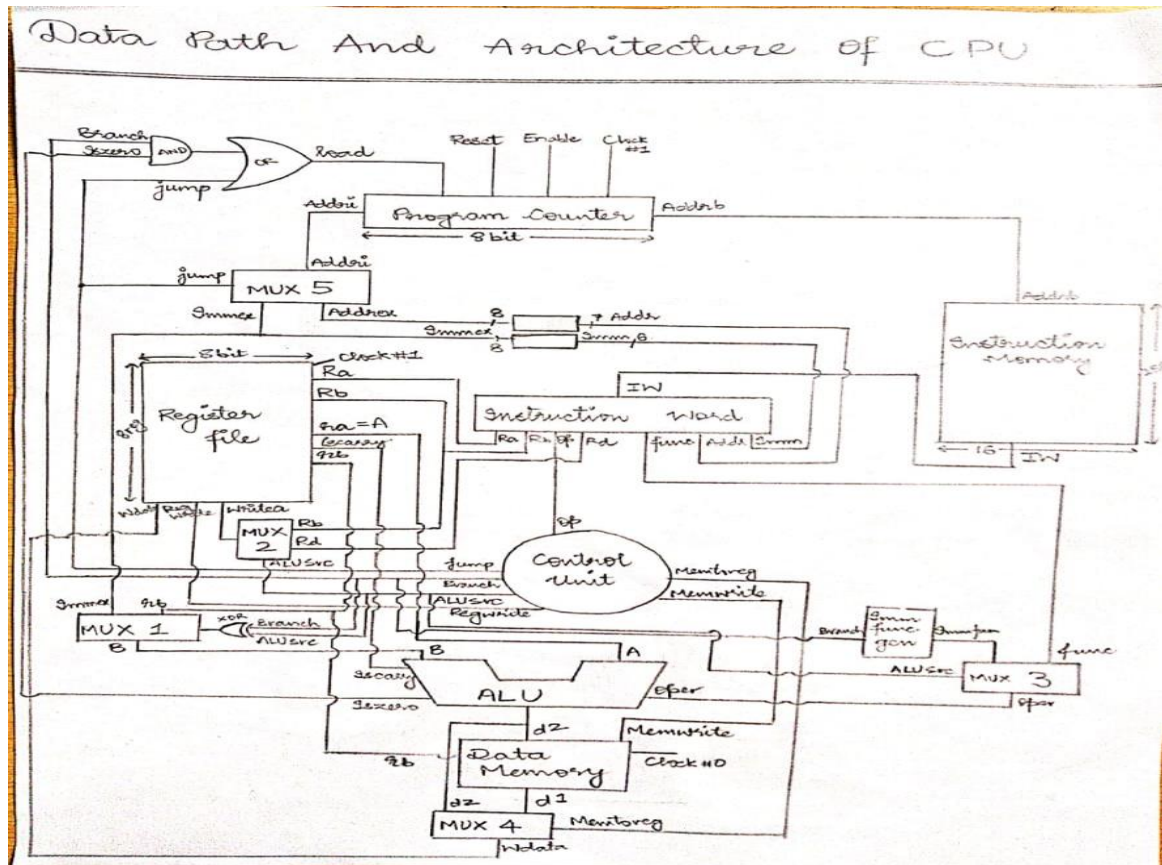 Data Path And Architecture of CPU
Branch
Iszero
AND
OR
load
jump
Reset Enable Clock #1
Addri
Program Counter
Addrb
8bit
jump
Addri
MUX 5
Immex
Addrex
8
7 Addr
Immex
8
Imm 6
Addrb
Instruction Memory
16
IW
8bit
Clock #1
Register file
8reg
Ra
Rb
ra=A
Iscarry
rb
Wdata Reg Write Writea
IW
Instruction Word
Ra Rb Op Rd func Addr Imm
MUX 2
Rb
Rd
ALUSrc
Op
Control Unit
Jump
Branch
ALUSrc
Regwrite
Memtoreg
Memwrite
Immex
rb
MUX 1
B
XOR
Branch
ALUSrc
Branch
Imm func gen
Immfun
func
ALUSrc
MUX 3
Oper
B
A
Iscarry
Iszero
ALU
Oper
d2
Memwrite
rb
Data Memory
Clock #0
d2
d1
MUX 4
Memtoreg
Wdata